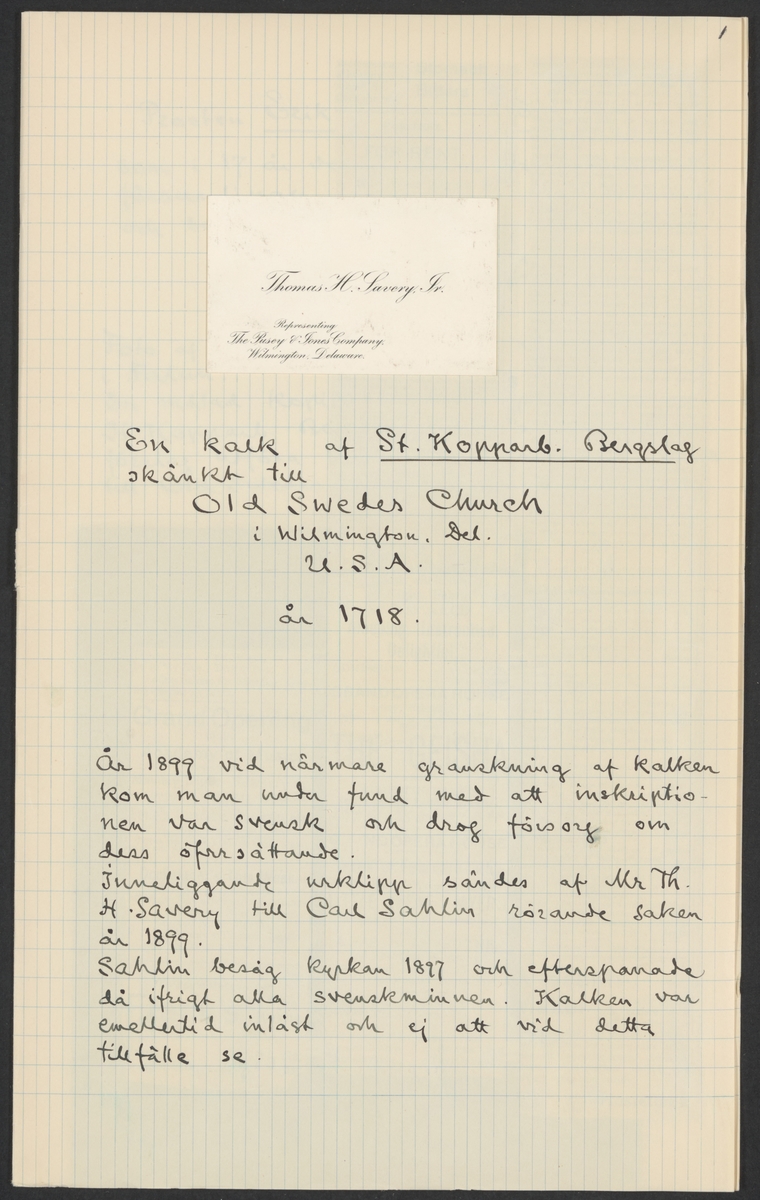 1
Thomas H. Savery, Jr.
Representing
The Pusey & Jones Company,
Wilmington, Delaware.
En kalk af St. Kopparb. Bergslag
skänkt till
Old Swedes Church
i Wilmington, Del.
U.S.A.
år 1718.
År 1899 vid närmare granskning af kalken
kom man under fund med att inskriptio-
nen var svensk och drog försorg om
dess öfversättande.
Inneliggande urklipp sändes af Mr Th.
H. Savery till Carl Sahlin rörande saken
år 1899.
Sahlin besåg kyrkan 1897 och efterspanade
då ifrigt alla svenskminnen. Kalken var
emellertid inlåst och ej att vid detta
tillfälle se.